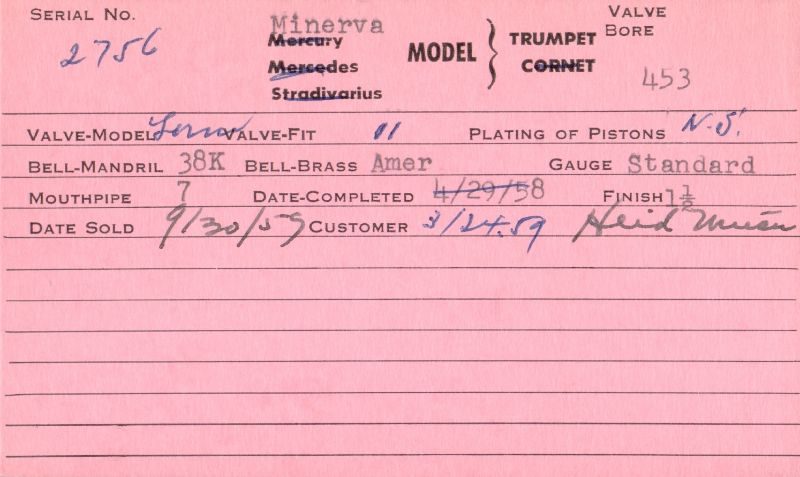 SERIAL NO. 2756
Minerva
Mercury
Mercedes
Stradivarius
MODEL
TRUMPET
CORNET
VALVE BORE 453
VALVE-MODEL VALVE-FIT 11 PLATING OF PISTONS N.S.
BELL-MANDRIL 38K BELL-BRASS Amer GAUGE Standard
MOUTHPIPE 7 DATE-COMPLETED 4/29/58 FINISH 1½
DATE SOLD 9/30/59 CUSTOMER 3/24.59 Heid Music